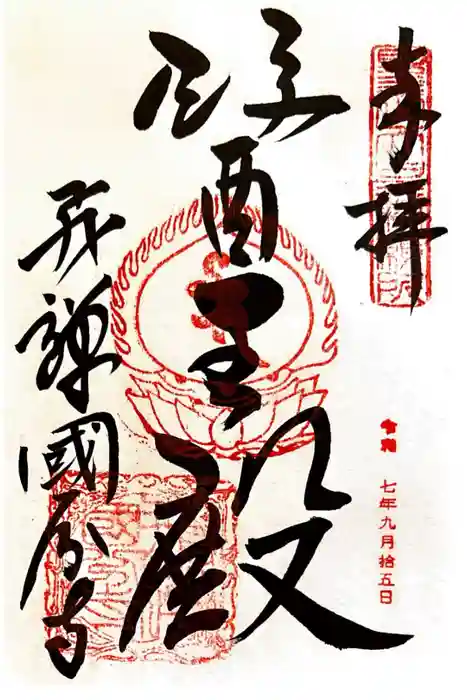 奉拝
醫王殿
飛騨國分寺
令和 七年九月拾五日